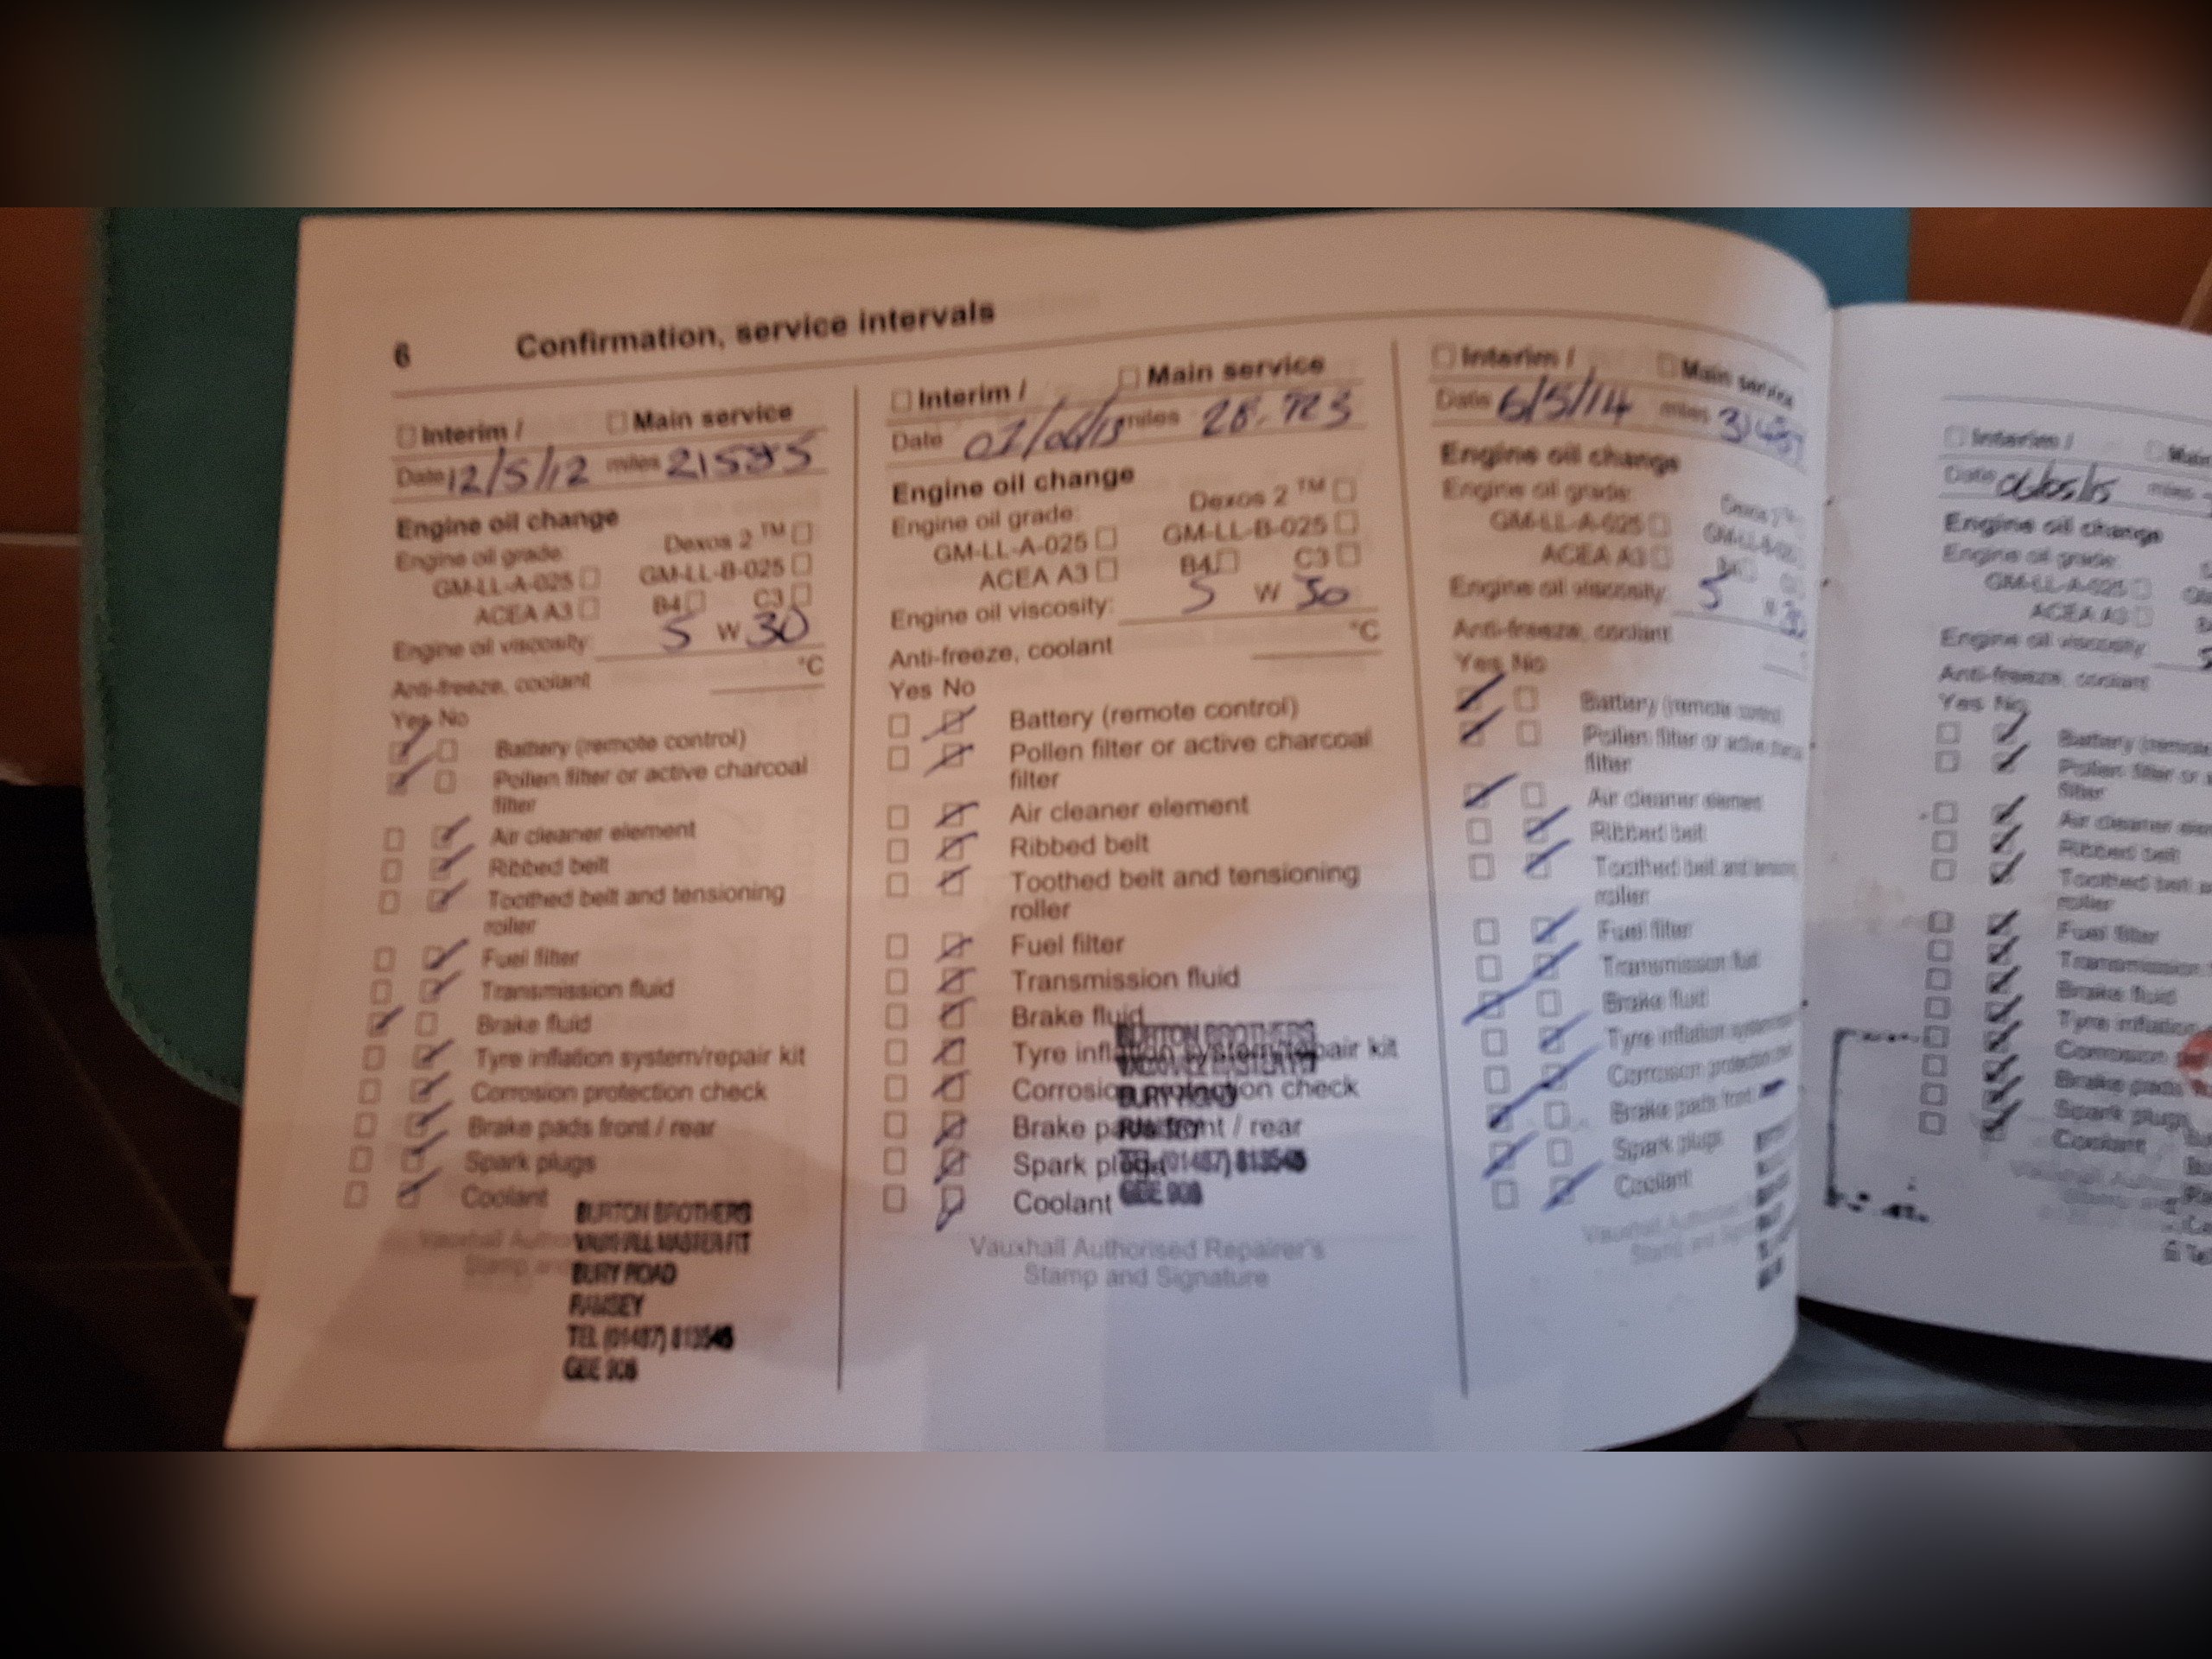 6 Confirmation, service intervals
Interim / Main service
Date 12/5/12 miles
Engine oil change
Engine oil grade: Dexos 2 ™
GM-LL-A-025 GM-LL-B-025
ACEA A3 B4 C3
Engine oil viscosity: 5 W 30
Anti-freeze, coolant °C
Yes No
Battery (remote control)
Pollen filter or active charcoal
filter
Air cleaner element
Ribbed belt
Toothed belt and tensioning
roller
Fuel filter
Transmission fluid
Brake fluid
Tyre inflation system/repair kit
Corrosion protection check
Brake pads front / rear
Spark plugs
Coolant
Vauxhall
Stamp and
BURTON BROTHERS
MASTERFIT
BURY ROAD
RAMSEY
TEL (01487) 813545
Interim / Main service
Date miles
Engine oil change
Engine oil grade: Dexos 2 ™
GM-LL-A-025 GM-LL-B-025
ACEA A3 B4 C3
Engine oil viscosity: 5 W 30
Anti-freeze, coolant °C
Yes No
Battery (remote control)
Pollen filter or active charcoal
filter
Air cleaner element
Ribbed belt
Toothed belt and tensioning
roller
Fuel filter
Transmission fluid
Brake fluid
Tyre inflation system/repair kit
Corrosion protection check
Brake pads front / rear
Spark plugs
Coolant
BURTON BROTHERS
BURY ROAD
(01487) 813545
Vauxhall Authorised Repairer's
Stamp and Signature
Interim / Main service
Date 6/5/14 miles
Engine oil change
Engine oil grade:
GM-LL-A-025
ACEA A3
Engine oil viscosity: 5
Anti-freeze, coolant
Yes No
Battery (remote control)
Pollen filter or active
filter
Air cleaner element
Ribbed belt
Toothed belt and
roller
Fuel filter
Transmission fluid
Brake fluid
Tyre inflation
Corrosion protection
Brake pads front
Spark plugs
Coolant
Vauxhall
Stamp and
Interim / Main
Date
Engine oil change
Engine oil grade:
GM-LL-A-025
ACEA A3
Engine oil viscosity:
Anti-freeze, coolant
Yes No
Battery
Pollen filter or
filter
Air cleaner
Ribbed belt
Toothed belt
roller
Fuel filter
Transmission
Brake fluid
Tyre inflation
Corrosion
Brake pads
Spark plugs
Coolant